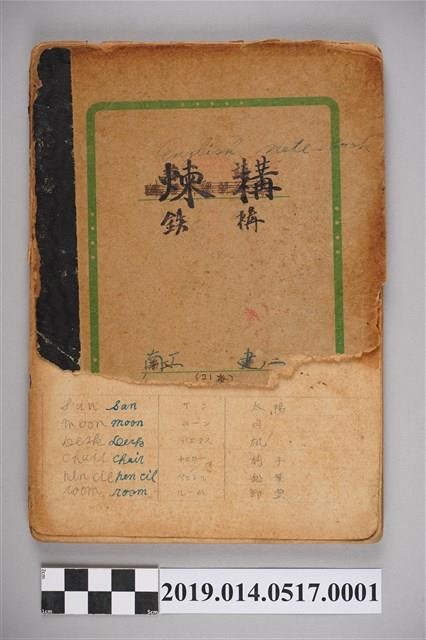 english note-book
煉 構
鉄 構
南工 建二
(21番)
san san サン 太陽
moon moon ムーン 月
desk desk デスク 机
chair chair チェヤー 椅子
pencil pencil ペンシル 鉛筆
room room ルーム 部屋
2cm
1cm
5cm
2019.014.0517.0001